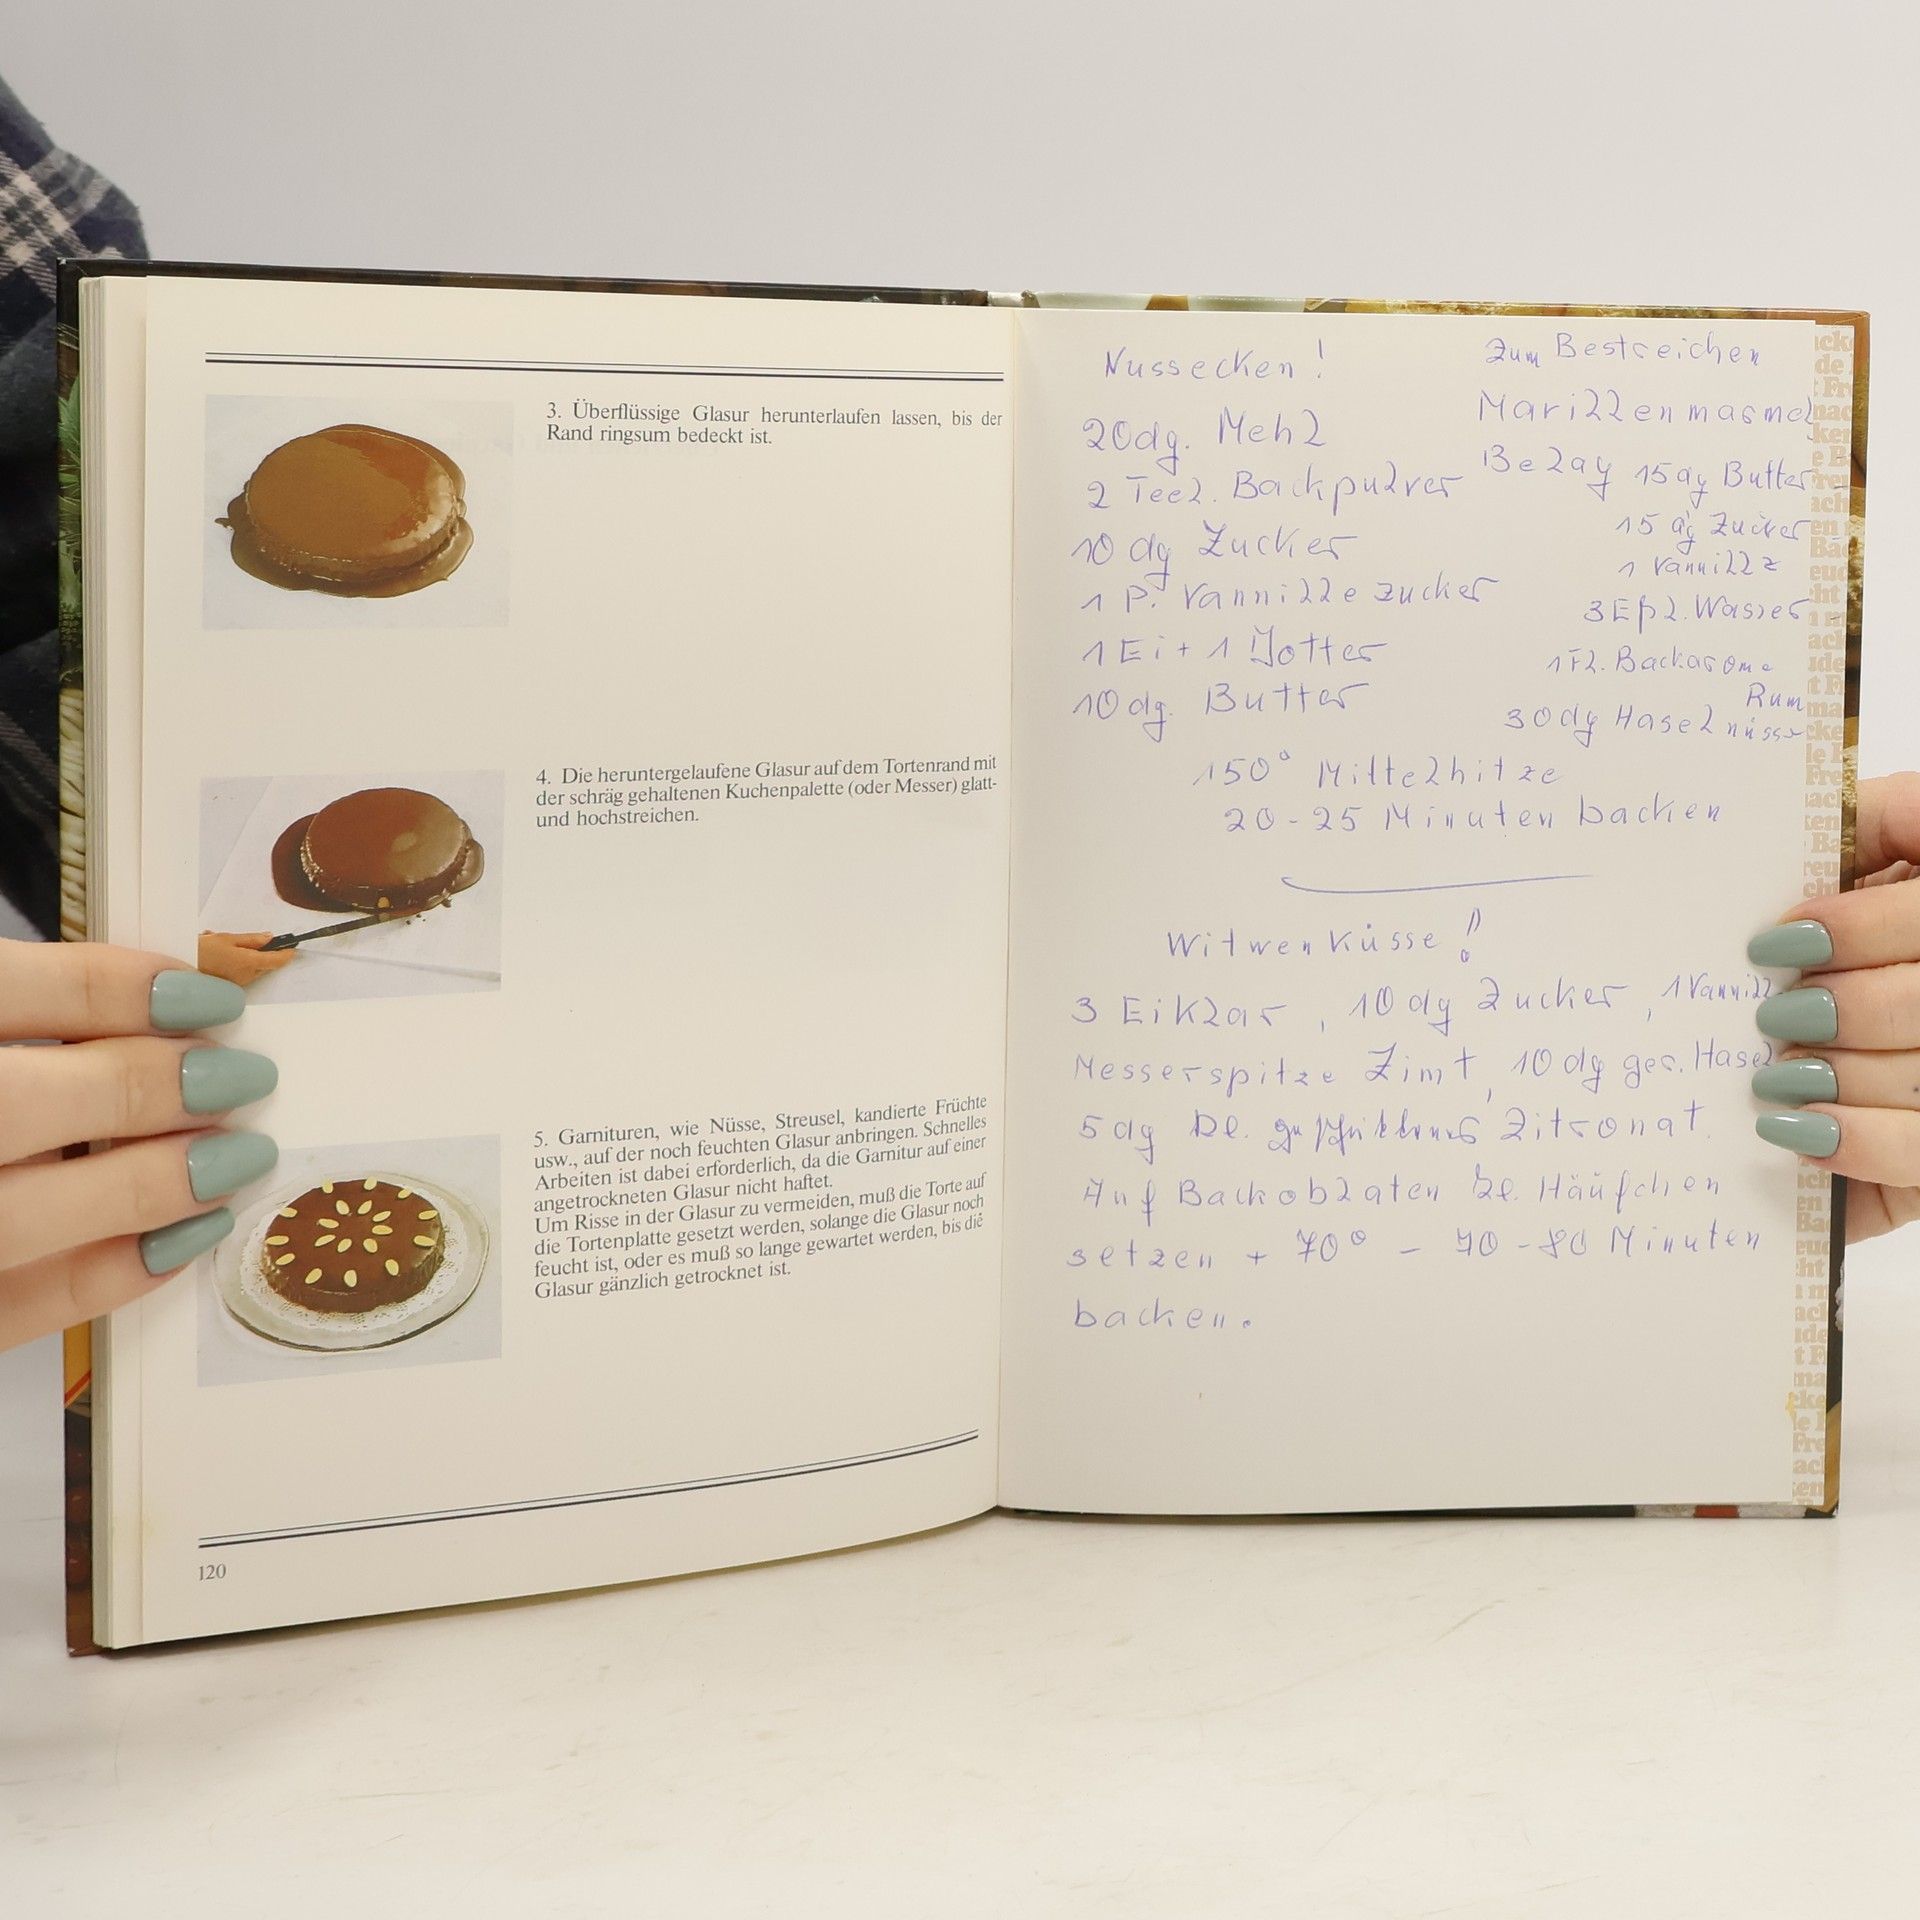 3. Überflüssige Glasur herunterlaufen lassen, bis der
Rand ringsum bedeckt ist.
4. Die heruntergelaufene Glasur auf dem Tortenrand mit
der schräg gehaltenen Kuchenpalette (oder Messer) glatt-
und hochstreichen.
5. Garnituren, wie Nüsse, Streusel, kandierte Früchte
usw., auf der noch feuchten Glasur anbringen. Schnelles
Arbeiten ist dabei erforderlich, da die Garnitur auf einer
angetrockneten Glasur nicht haftet.
Um Risse in der Glasur zu vermeiden, muß die Torte auf
die Tortenplatte gesetzt werden, solange die Glasur noch
feucht ist, oder es muß so lange gewartet werden, bis die
Glasur gänzlich getrocknet ist.
120
Nussecken!
20dg. Mehl
2 Teel. Backpulver
10 dg Zucker
1 P. Vannillezucker
1 Ei + 1 Dotter
10 dg. Butter
zum Bestreichen
Marillenmarmel
Belag 15 dg Butter
15 dg Zucker
1 Vannillz
3 Eßl. Wasser
1 Fl. Backarome
Rum
30dg Haselnüsse
150° Mittelhitze
20-25 Minuten backen
Witwenküsse!
3 Eiklar, 10 dg Zucker, 1 Vannill
Messerspitze Zimt, 10 dg ger. Hasel
5 dg Zitronat
Auf Backoblaten kl. Häufchen
setzen + 70° - 70-80 Minuten
backen.